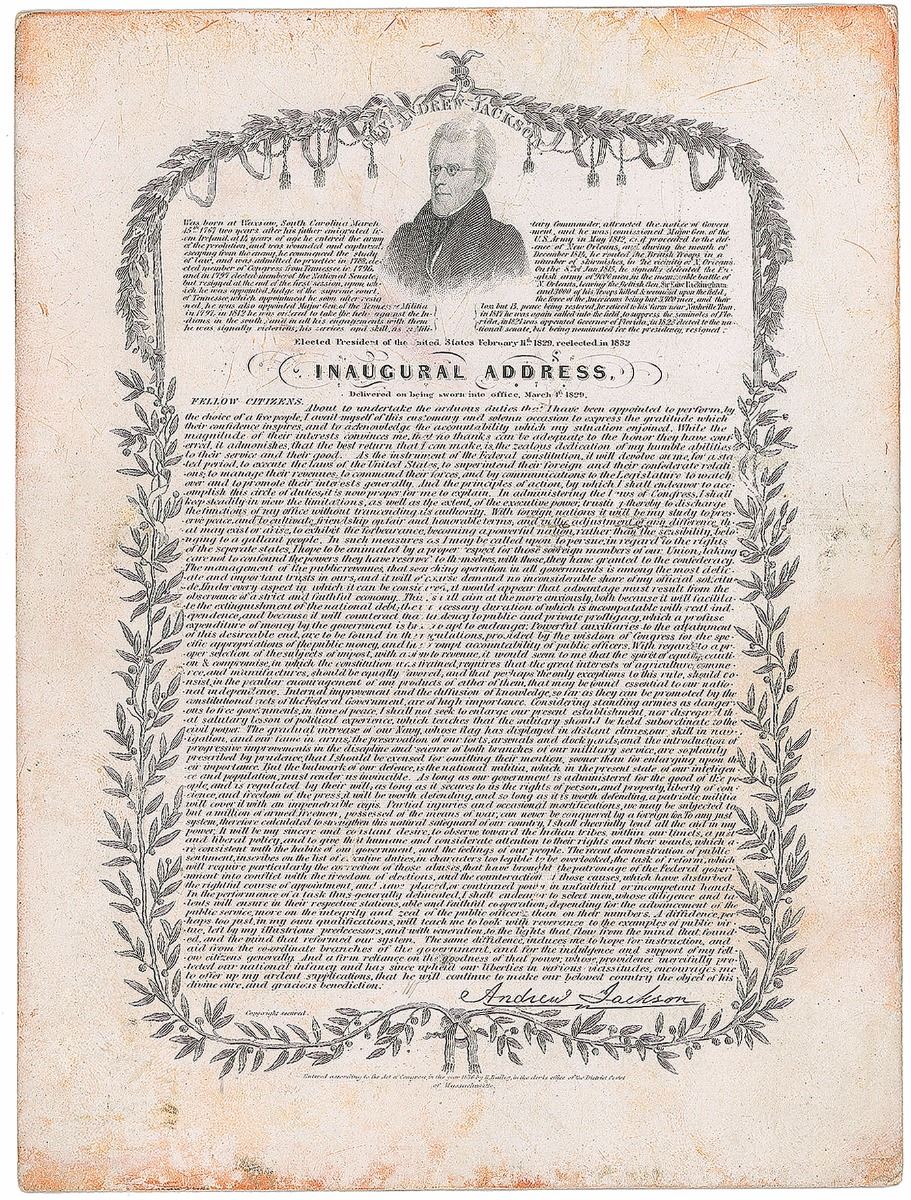 GEN. ANDREW JACKSON
Was born at Waxsaw, South Carolina March
15th 1767 two years after his father emigrated fr-
om Ireland, at 14 years of age he entered the army
of the revolution, and was wounded and captured,
escaping from the army, he commenced the study
of Law, and was admitted to practice in 1788, ele-
cted member of Congress from Tennessee in 1796,
and in 1797 elected member of the National Senate,
but resigned at the end of the first session, upon wh-
ich he was appointed Judge of the supreme court,
of Tennessee, which appointment he soon after resig
ned, he was also appointed Major Gen. of the Tennessee Militia
in 1797, in 1812 he was ordered to take the field against the In-
dians in the south, until in all his engagements with them
he was signally victorious, his services and skill, as a Mili-
tary Commander, attracted the notice of Govern
ment, and he was commissioned Major Gen. of the
U.S. Army in May 1812, and proceeded to the def-
ence of New Orleans, and during the month of
December 1814, he routed the British Troops in a
number of skirmishes, in the vicinity of N. Orleans.
On the 8th of Jan. 1815, he signally defeated the En-
glish army of men, in the memorable battle of
N. Orleans, leaving the British Gen. Sir Packingham
and 3000 of his Troops killed & wounded upon the field,
the force of the Americans being but 3700 men, and their
loss but 13. peace being restored he retired to his farm near Nashville Tenn
in 1817 he was again called into the field, to suppress the seminoles of Flo-
rida, in 1821 was appointed Governor of Florida, in 1823 elected to the na-
tional senate, but being nominated for the presidency, resigned
Elected President of the United States February 11th 1829, reelected in 1832
INAUGURAL ADDRESS,
Delivered on being sworn into office, March 4th 1829,
FELLOW CITIZENS.
About to undertake the arduous duties that I have been appointed to perform, by
the choice of a free people, I avail myself of this customary and solemn occasion to express the gratitude which
their confidence inspires, and to acknowledge the accountability which my situation enjoined. While the
magnitude of their interests convinces me, that no thanks can be adequate to the honor they have conf
erred, it admonishes, that the best return that I can make, is the zealous dedication of my humble abilities
to their service and their good. As the instrument of the Federal constitution, it will devolve on me, for a sta-
ted period, to execute the laws of the United States, to superintend their foreign and their confederate relati-
ons; to manage their revenues, to command their forces, and by communications to the Legislature to watch
over and to promote their interests generally. And the principles of action, by which I shall endeavor to acc
omplish this circle of duties, it is now proper for me to explain. In administering the laws of Congress, I shall
keep steadily in view the limitations, as well as the extent, of the executive power, trusting thereby to discharge
the functions of my office without trancending its authority. With foreign nations it will be my study to pres-
erve peace, and to cultivate friendship on fair and honorable terms, and in the adjustment of any difference th-
at may exist or arise, to exhibit the forbearance, becoming a powerful nation, rather than the sensibility, belo-
nging to a gallant people. In such measures as I may be called upon to persue, in regard to the rights
of the seperate states, I hope to be animated by a proper respect for those sovereign members of our Union, taking
care not to confound the powers they have reserved to themselves, with those, they have granted to the confederacy.
The management of the public revenues, that searching operation in all governments is among the most delic-
ate and important trusts in ours, and it will of course demand no inconsiderable share of my official solicitu
de. Under every aspect in which it can be considered, it would appear that advantage must result from the
observance of a strict and faithful economy. This I shall aim at the more anxiously, both because it will facilita-
te the extinguishment of the national debt, the unnecessary duration of which is incompatable with real ind-
ependence, and because it will counteract that tendency to public and private profligacy, which a profuse
expenditure of money by the government is but too apt to endanger. Powerful auxiliaries to the attainment
of this desireable end, are to be found in the regulations, provided by the wisdom of Congress for the spe-
cific appropriations of the public money, and in the prompt accountability of public officers. With regard to a pr-
oper selection of the subjects of impost, with a view to revenue, it would seem to me that the spirit of equity, cauti-
on & compromise, in which the constitution was framed, requires that the great interests of agriculture, comme-
rce, and manufactures, should be equally favored, and that perhaps the only exceptions to this rule, should co-
nsist, in the peculiar encouragement of any products of either of them, that may be found essential to our natio-
nal independence. Internal improvement and the diffusion of knowledge, so far as they can be promoted by the
constitutional acts of the Federal Government, are of high importance. Considering standing armies as danger-
ous to free governments, in time of peace, I shall not seek to enlarge our present establishment, nor disregard th-
at salutary lesson of political experience, which teaches that the military should be held subordinate to the
civil power. The gradual increase of our Navy, whose flag has displayed in distant climes, our skill in nav-
igation, and our fame in arms; the preservation of our forts, arsenals and dock yards, and the introduction of
progressive improvements in the discipline and science of both branches of our military service, are so plainly
prescribed by prudence, that I should be excused for omitting their mention, sooner than for enlarging upon th-
eir importance. But the bulwark of our defence, is the national militia, which in the present state of our intelligen-
ce and population, must render us invincible. As long as our government is administered for the good of the pe-
ople, and is regulated by their will, as long as it secures to us the rights of person, and property, liberty of con-
cience, and freedom of the press, it will be worth defending, and so long as it is worth defending, a patriotic militia
will cover it with an impenetrable aegis. Partial injuries and occasional mortifications, we may be subjected to
but a million of armed freemen, possessed of the means of war, can never be conquered by a foreign foe. To any just
system, therefore calculated to strengthen this natural safeguard of our country, I shall cheerfully lend all the aid in my
power. It will be my sincere and constant desire, to observe toward the Indian tribes, within our limits, a just
and liberal policy, and to give that humane and considerate attention to their rights and their wants, which a-
re consistent with the habits of our government, and the feelings of our people. The recent demonstration of public
sentiment, inscribes on the list of executive duties, in characters too legible to be overlooked, the task of reform, which
will require particularly the correction of those abuses, that have brought the patronage of the Federal gover-
nment into conflict with the freedom of elections, and the counteraction of those causes, which have disturbed
the rightful course of appointment, and have placed, or continued power in unfaithful or incompetent hands.
In the performance of a task thus generally delineated, I shall endeavor to select men, whose diligence and ta-
lents will ensure in their respective stations, able and faithful co-operation, depending for the advancement of the
public service, more on the integrity and zeal of the public officers than on their numbers. A diffidence, per
haps too just, in my own qualifications, will teach me to look with reverence to the examples of public vir-
tue, left by my illustrious predecessors, and with veneration, to the lights that flow from the mind that found-
ed, and the mind that reformed our system. The same diffidence, induces me to hope for instruction, and
aid from the co-ordinate branches of the government, and for the indulgence and support of my fell-
ow citizens generally. And a firm reliance on the goodness of that power, whose, providence mercifully pro-
tected our national infancy and has since upheld our liberties in various vicissitudes, encourages me
to offer up my ardent supplications, that he will continue to make our beloved country the object of his
divine care, and gracious benediction.
Andrew Jackson
Copyright secured.
Entered according to the Act of Congress, in the year 1836 by in the clerks office of the District Court
of Massachusetts.